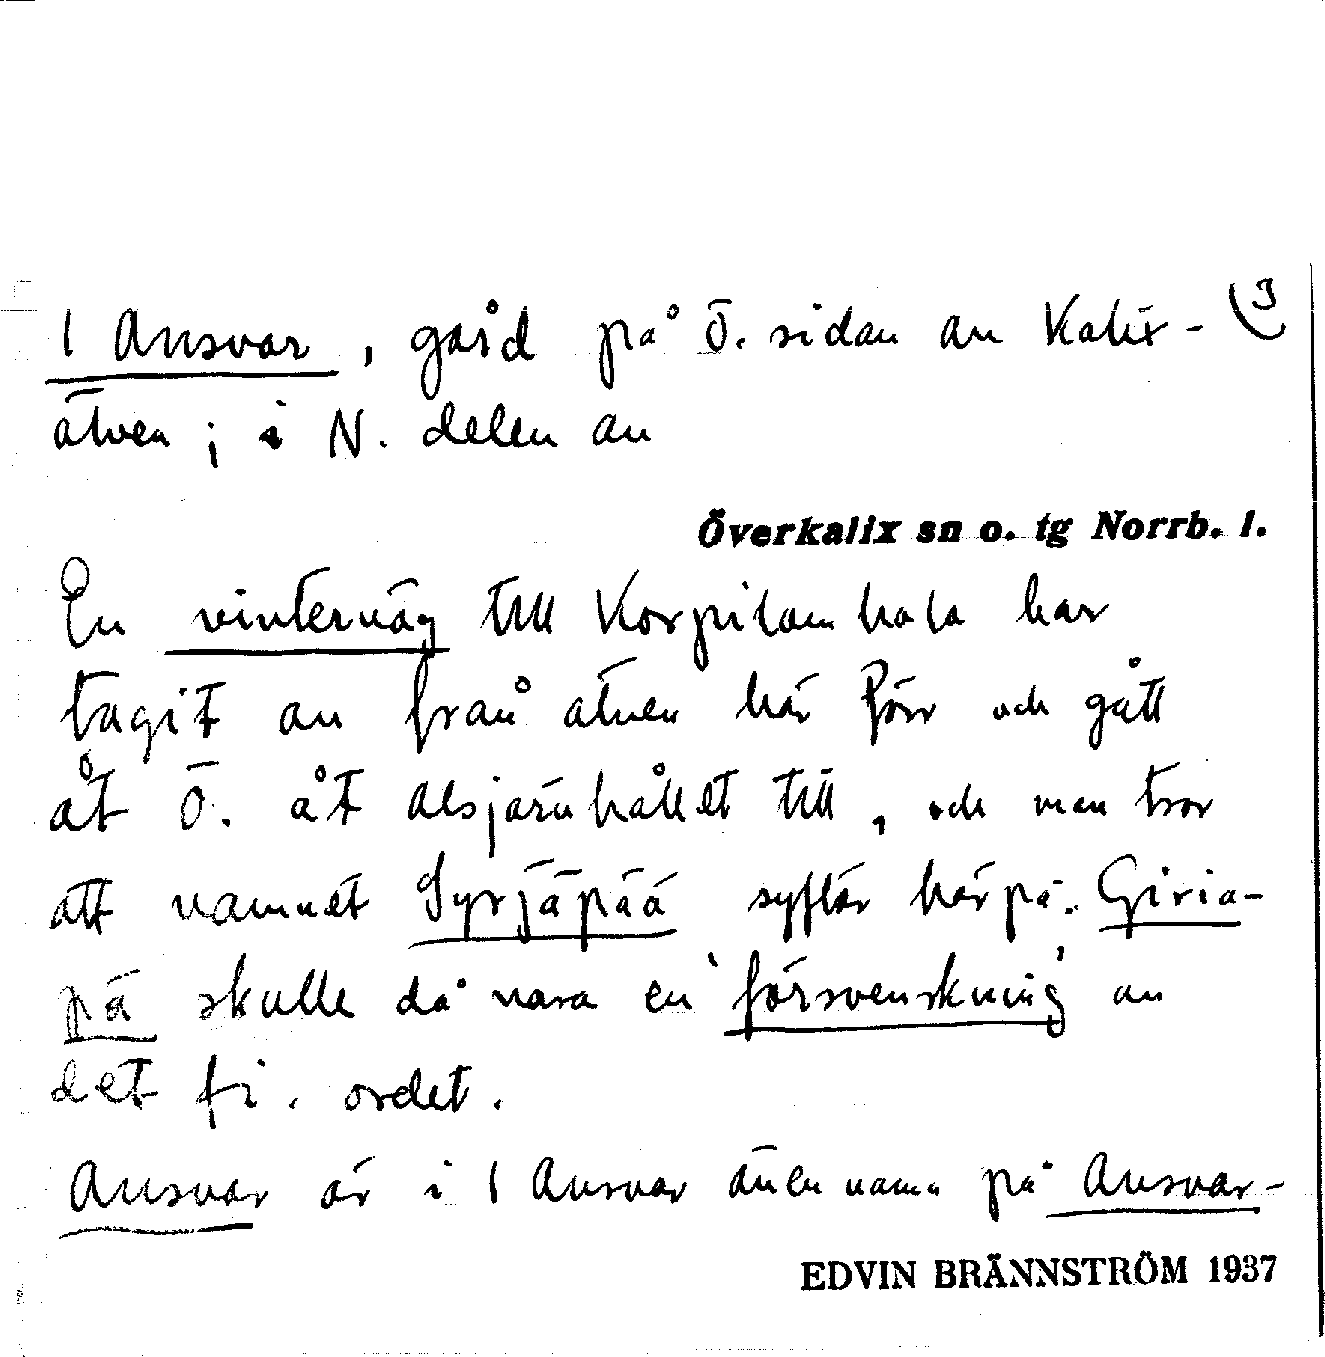 1 Ansvar, gård på ö. sidan av Kalix- 3
älven; i N. delen av
Överkalix sn o. tg Norrb. l.
En vinterväg till Korpilombolo har
tagit av från älven här förr och gått
åt ö. åt Alsjärvhållet till, och man tror
att namnet Syrjäpää syftar härpå. Giria-
pä skulle då vara en 'försvenskning' av
det fi. ordet.
Ansvar är i 1 Ansvar även namn på Ansvar-
EDVIN BRÄNNSTRÖM 1937